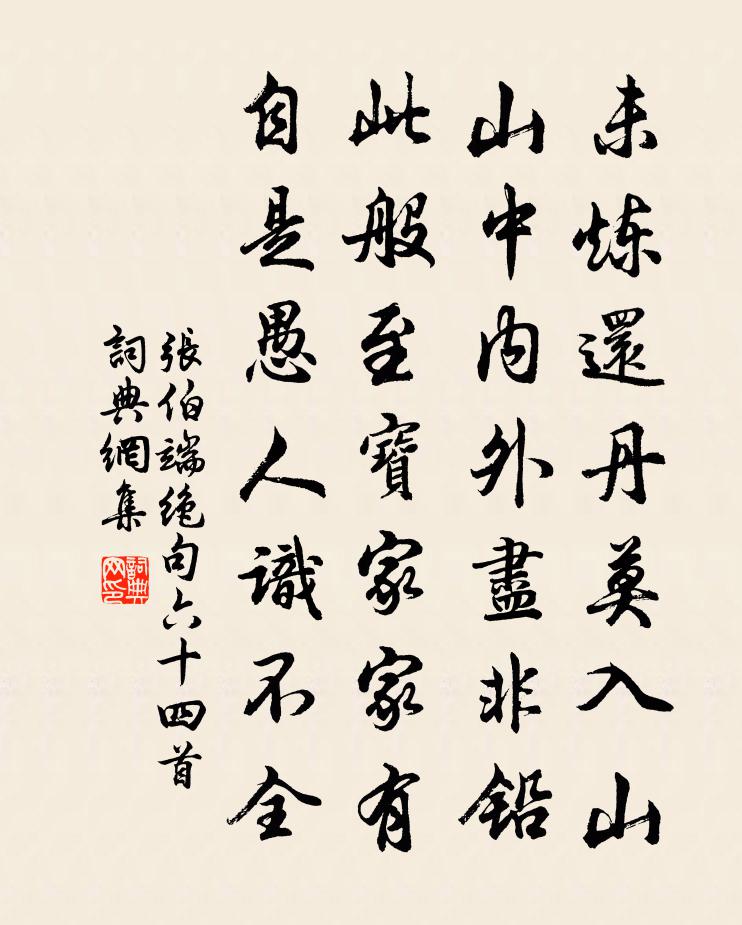 未炼還丹莫入山
山中内外盡非铅
此般至寶家家有
自是愚人識不全
張伯端绝句六十四首
詞典網集
詞典网印